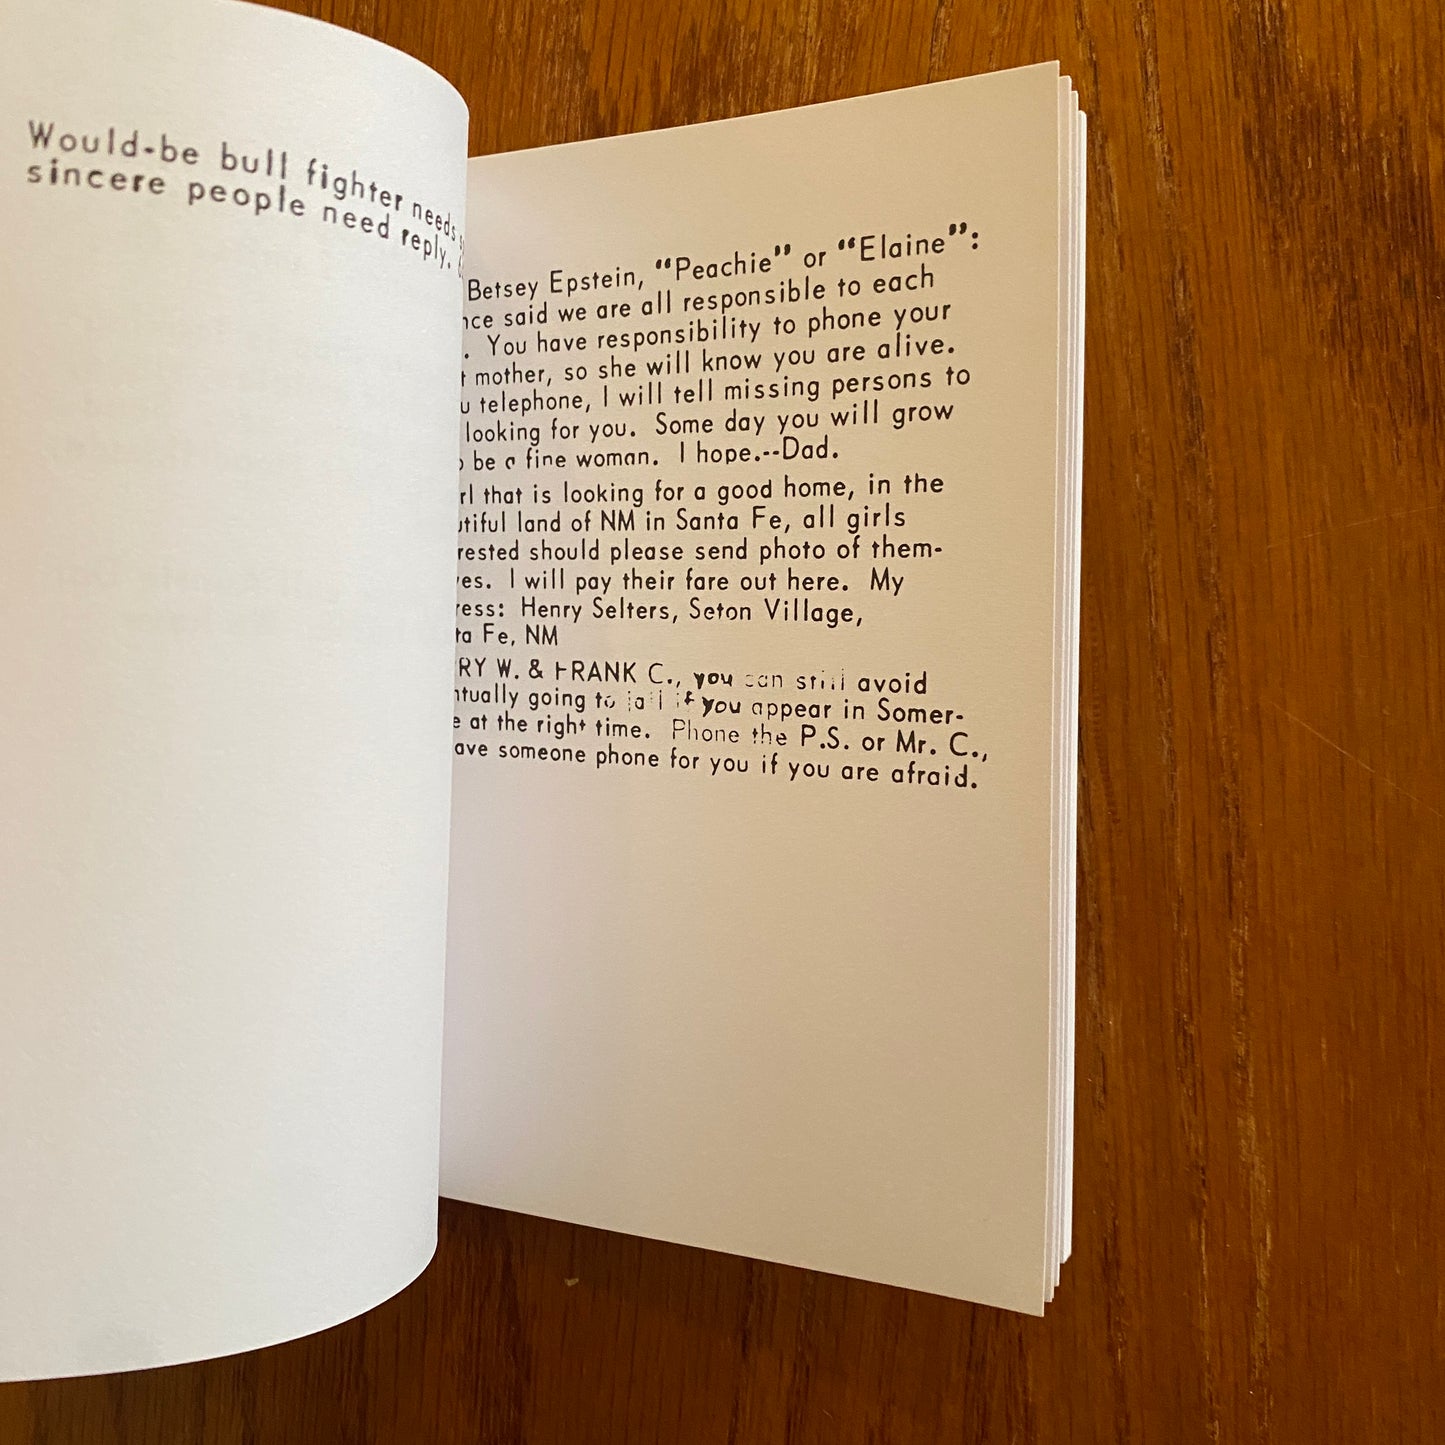 Would-be bull fighter needs
sincere people need reply.
Betsey Epstein, “Peachie” or “Elaine”:
said we are all responsible to each
. You have responsibility to phone your
mother, so she will know you are alive.
telephone, I will tell missing persons to
looking for you. Some day you will grow
be a fine woman. I hope.--Dad.
that is looking for a good home, in the
land of NM in Santa Fe, all girls
should please send photo of them-
I will pay their fare out here. My
Henry Selters, Seton Village,
Fe, NM
W. & FRANK C., you can still avoid
going to jail if you appear in Somer-
at the right time. Phone the P.S. or Mr. C.,
someone phone for you if you are afraid.